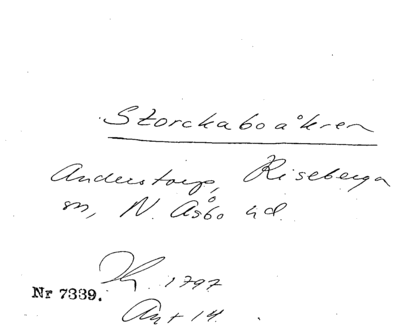 Storckaboåkren
Anderstorp, Riseberga
sn, N. Åsbo hd.
Kh. 1797
Nr 7339.
Ant 14.